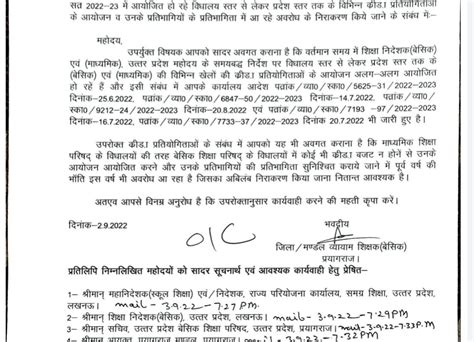 सत्र 2022-23 में आयोजित हो रहे विद्यालय स्तर से लेकर प्रदेश स्तर तक के विभिन्न क्रीडा प्रतियोगिताओं
के आयोजन व उनके प्रतिभागियों के प्रतिभागिता में आ रहे अवरोध के निराकरण किये जाने के संबंध में:-
महोदय,
उपर्युक्त विषयक आपको सादर अवगत कराना है कि वर्तमान समय में शिक्षा निदेशक(बेसिक)
एवं (माध्यमिक), उत्तर प्रदेश महोदय के समयबद्ध निर्देश पर विद्यालय स्तर से लेकर प्रदेश स्तर तक के
(बेसिक) एवं (माध्यमिक) की विभिन्न खेलों की क्रीडा प्रतियोगिताओं के आयोजन अलग-अलग आयोजित
हो रहे हैं और इसी संबंध में आपके कार्यालय आदेश पत्रांक/व्या0/स्का0/5625-31/2022-2023
दिनांक-25.6.2022, पत्रांक/व्या0/स्का0/6847-50/2022-2023 दिनांक-14.7.2022, पत्रांक/व्या0/
स्का0/9212-24/2022-2023 दिनांक-20.8.2022 एवं पत्रांक/व्या0/स्का0/7193 -97/2022-2023
दिनांक-16.7.2022, पत्रांक/व्या0/स्का0/7733-37/2022-2023 दिनांक 20.7.2022 भी जारी हुए है।
उपरोक्त क्रीडा प्रतियोगिताओं के संबंध में आपको यह भी अवगत कराना है कि माध्यमिक शिक्षा
परिषद के विधालयों की तरह बेसिक शिक्षा परिषद के विधालयों में कोई भी क्रीडा बजट न होनें से उनके
आयोजन आयोजित करने और उनके प्रतिभागियों की प्रतिभागिता सुनिश्चित कराये जाने में पूर्व वर्ष की
भाँति इस वर्ष भी अवरोध आ रहा है जिसका अबिलंब निराकरण किया जाना नितान्त आवश्यक है।
अतएव आपसे विनम्र अनुरोध है कि उपरोक्तानुसार कार्यवाही करने की महती कृपा करें।
दिनांक-2.9.2022 भवदीय
O/C
जिला/मण्डल व्यायाम शिक्षक(बेसिक)
प्रयागराज।
प्रतिलिपि निम्नलिखित महोदयों को सादर सूचनार्थ एवं आवश्यक कार्यवाही हेतु प्रेषित-
1- श्रीमान् महानिदेशक(स्कूल शिक्षा) एवं/निदेशक, राज्य परियोजना कार्यालय, समग्र शिक्षा, उत्तर प्रदेश,
लखनऊ। mail- 3.9.22 - 7:27 PM.
2- श्रीमान् शिक्षा निदेशक(बेसिक), उत्तर प्रदेश, लखनऊ। mail- 3.9.22 - 7:29PM
3- श्रीमान् सचिव, उत्तर प्रदेश बेसिक शिक्षा परिषद, उत्तर प्रदेश, प्रयागराज। mail-3.9.22-7:33P.M
4- श्रीमान् आयुक्त, प्रयागराज मण्डल, प्रयागराज। 7:32PM